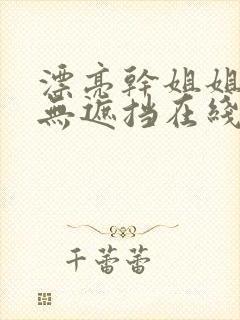 漂亮幹姐姐
無遮挡在綫
千蕾蕾